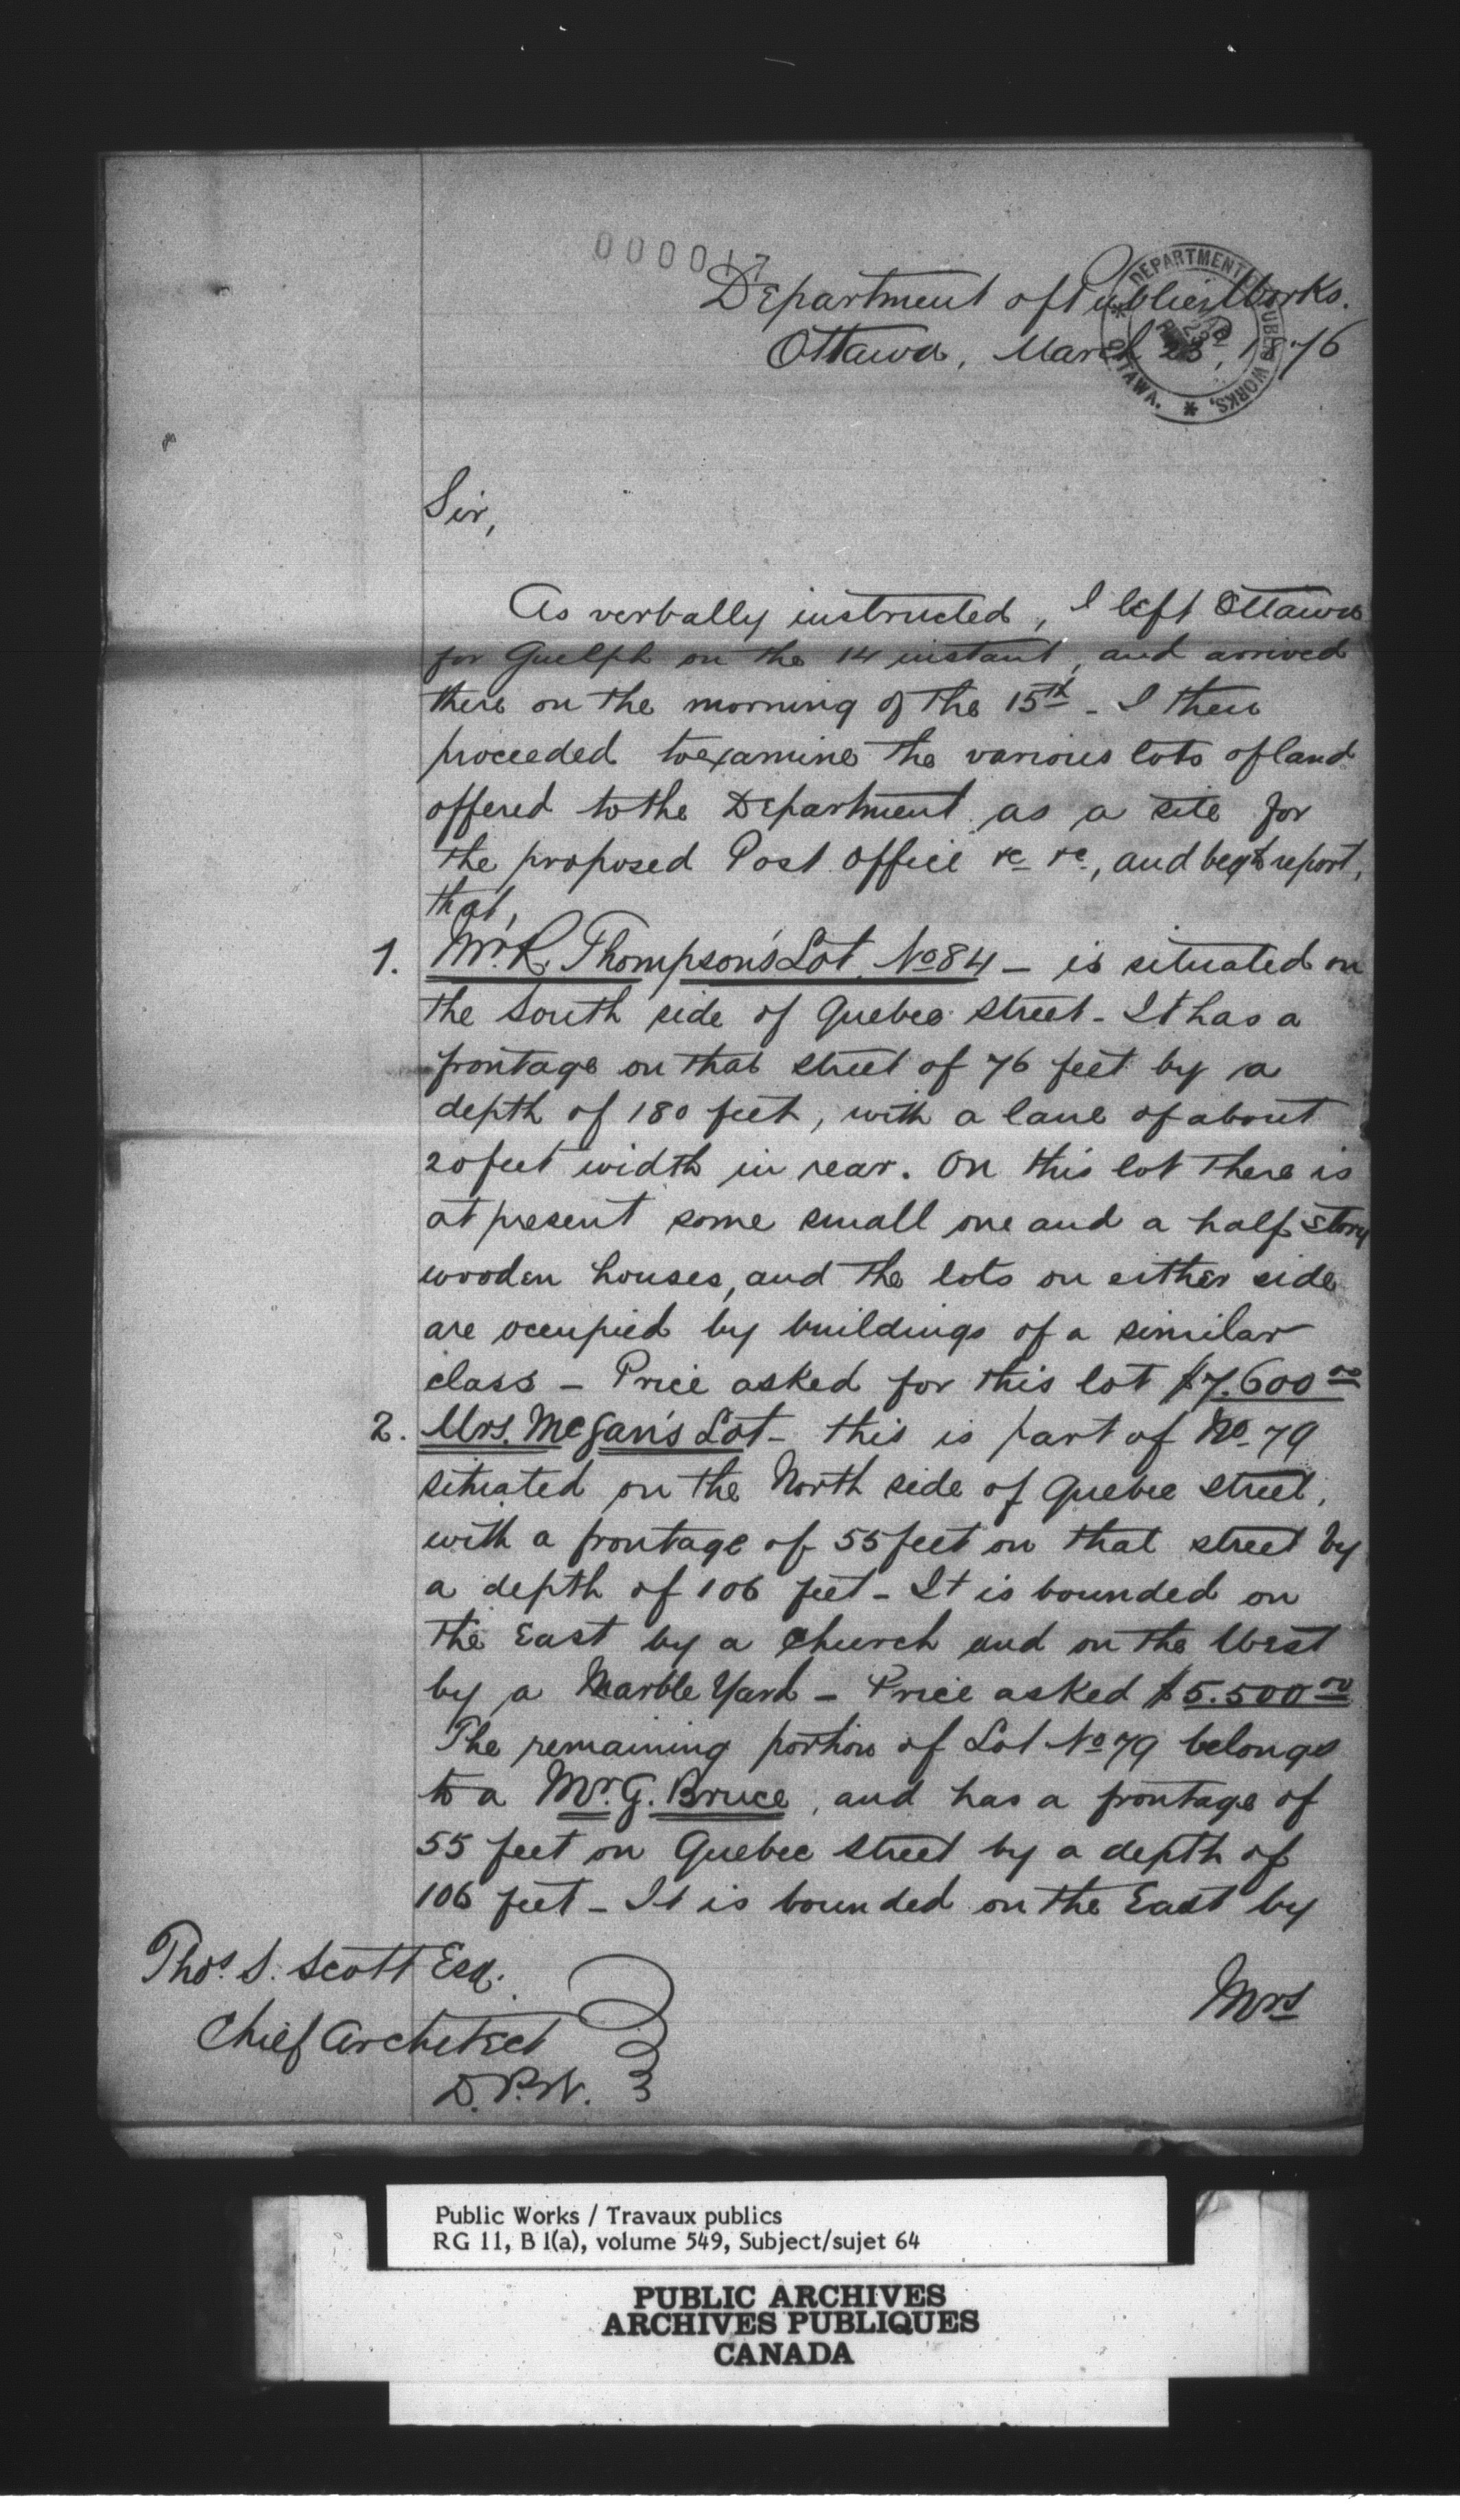 000017
Department of Public Works.
DEPARTMENT PUBLIC WORKS, OTTAWA.
Ottawa, March 23, 1876
Sir,
As verbally instructed, I left Ottawa
for Guelph on the 14 instant, and arrived
there on the morning of the 15th - I then
proceeded to examine the various lots of land
offered to the Department as a site for
the proposed Post Office &c &c, and beg to report,
that,
1. Mr. R. Thompson's Lot No 84 - is situated on
the South side of Quebec Street - It has a
frontage on that street of 76 feet by a
depth of 180 feet, with a lane of about
20 feet width in rear. On this lot there is
at present some small one and a half story
wooden houses, and the lots on either side
are occupied by buildings of a similar
class - Price asked for this lot $7.600 00
2. Mrs. McGan's Lot - this is part of No 79
situated on the North side of Quebec Street,
with a frontage of 55 feet on that street by
a depth of 106 feet - It is bounded on
the East by a Church and on the West
by a Marble Yard - Price asked $5.500 00
The remaining portion of Lot No 79 belongs
to a Mr. G. Bruce, and has a frontage of
55 feet on Quebec Street by a depth of
106 feet - It is bounded on the East by
Mrs
Thos. S. Scott Esq.
Chief Architect
D.P.W.
Public Works / Travaux publics
RG 11, B 1(a), volume 549, Subject/sujet 64
PUBLIC ARCHIVES
ARCHIVES PUBLIQUES
CANADA